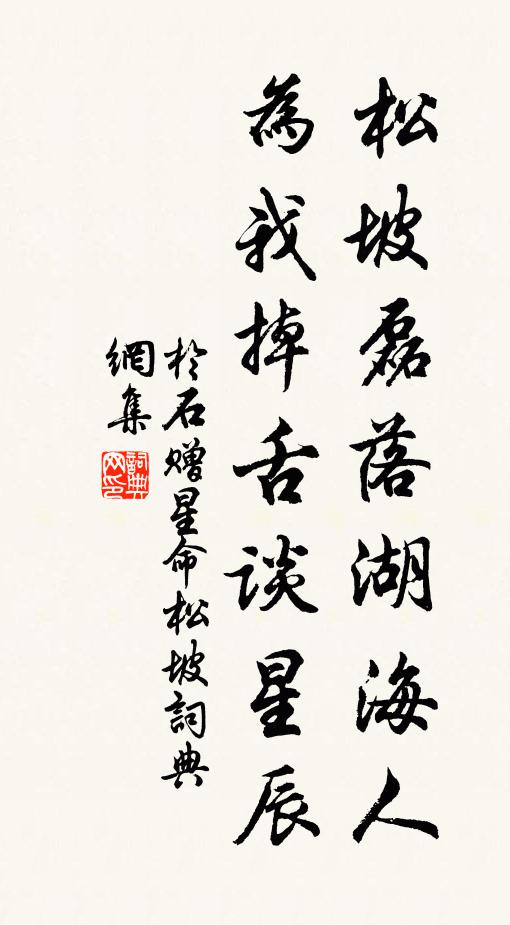 松坡磊落湖海人
為我掉舌談星辰
於石赠星命松坡詞典
網集
詞典網印